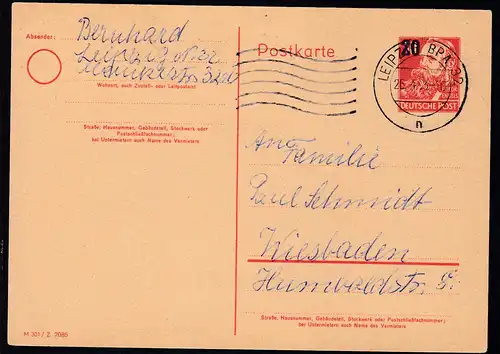 Absender:
Bernhard
Leipzig N 22
Wohnort, auch Zustell- oder Leitpostamt
Straße, Hausnummer, Gebäudeteil, Stockwerk oder
Postschließfachnummer;
bei Untermietern auch Name des Vermieters
M 301 / Z 7085
Postkarte
20
LEIPZIG BPA 32
DEUTSCHE POST
n
An
Familie
Paul Schmidt
Wiesbaden
Humboldtstr.
Straße, Hausnummer, Gebäudeteil, Stockwerk oder Postschließfachnummer;
bei Untermietern auch Name des Vermieters